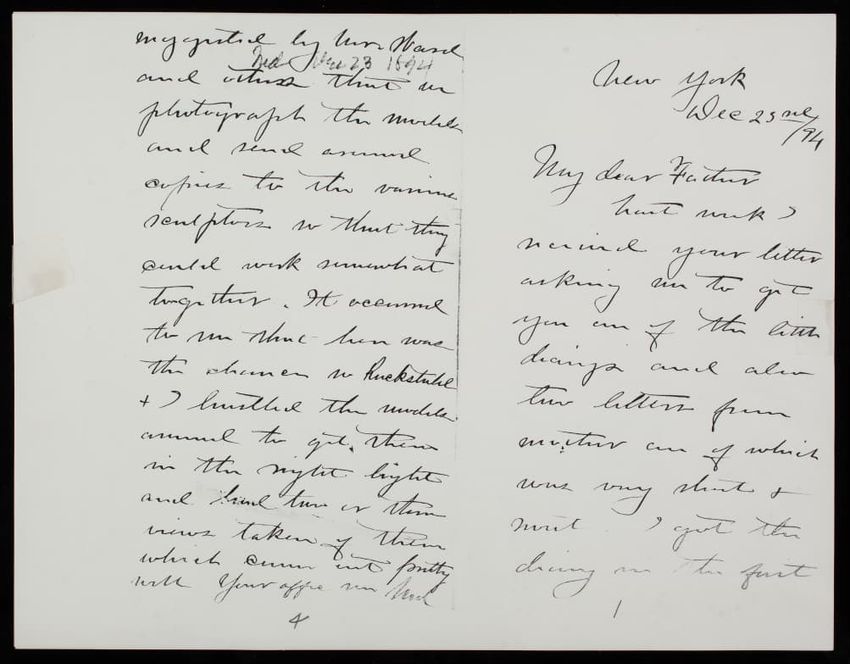 suggested by Mr. Ward
Ned Dec 23 1894
and others that we
photograph the models
and send around
copies to the various
sculptors so that they
could work somewhat
together. It occurred
to me that here was
the chance so Ruckstuhl
+ I hustled the models
around to get them
in the right light
and had two or three
views taken of them
which come out pretty
well Your affec son Ned
4
New York
Dec 23rd/94
My dear Father
Last week I
received your letter
asking me to get
you one of the little
diarys and also
two letters from
mother one of which
was very short +
sweet. I got the
diary in the first
1